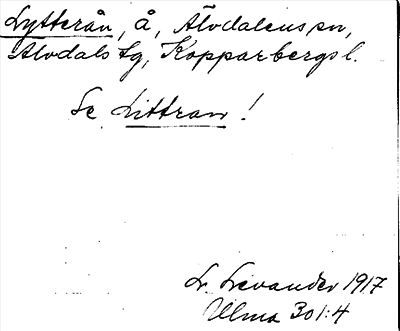 Lytterån, å, Älvdalens sn,
Älvdals tg, Kopparbergs l.
Se Littran!
L. Levander 1917
Ulma 301:4